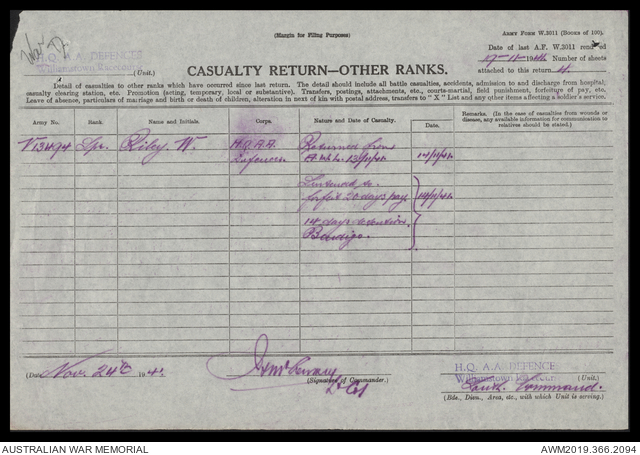 (Margin for Filing Purposes)
ARMY FORM W.3011 (BOOKS OF 100).
Date of last A.F. W.3011 rendered
H.Q. A.A. DEFENCES
Williamstown Racecourse
(Unit.)
17-11-
Number of sheets
attached to this return 4.
CASUALTY RETURN—OTHER RANKS.
Detail of casualties to other ranks which have occurred since last return. The detail should include all battle casualties, accidents, admission to and discharge from hospital,
casualty clearing station, etc. Promotion (acting, temporary, local or substantive). Transfers, postings, attachments, etc., courts-martial, field punishment, forfeiture of pay, etc.
Leave of absence, particulars of marriage and birth or death of children, alteration in next of kin with postal address, transfers to "X" List and any other items affecting a soldier's service.
Army No. Rank. Name and Initials. Corps. Nature and Date of Casualty. Date. Remarks. (In the case of casualties from wounds or
disease, any available information for communication to
relatives should be stated.)
V13494 Spr. Riley W. H.Q. A.A. Returned from
Defences A.W.L. 13/11/41. 14/11/41.
Sentenced to
forfeit 20 days pay 14/11/41
14 days detention
Bendigo.
(Date) Nov. 24th 1941
(Signature of Commander.)
Lt Col
H.Q. A.A. DEFENCE
Williamstown Racecourse
(Unit.)
South. Command.
(Bde., Divn., Area, etc., with which Unit is serving.)
AUSTRALIAN WAR MEMORIAL
AWM2019.366.2094